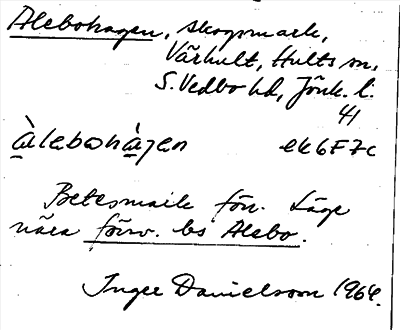 Alebohagen, skogsmark,
Vårhult, Hults sn,
S. Vedbo hd, Jönk. l.
41
àlebωhàgen ek 6F7c
Betesmark förr. Läge
nära förv. bs Alebo.
Inger Danielsson 1964.